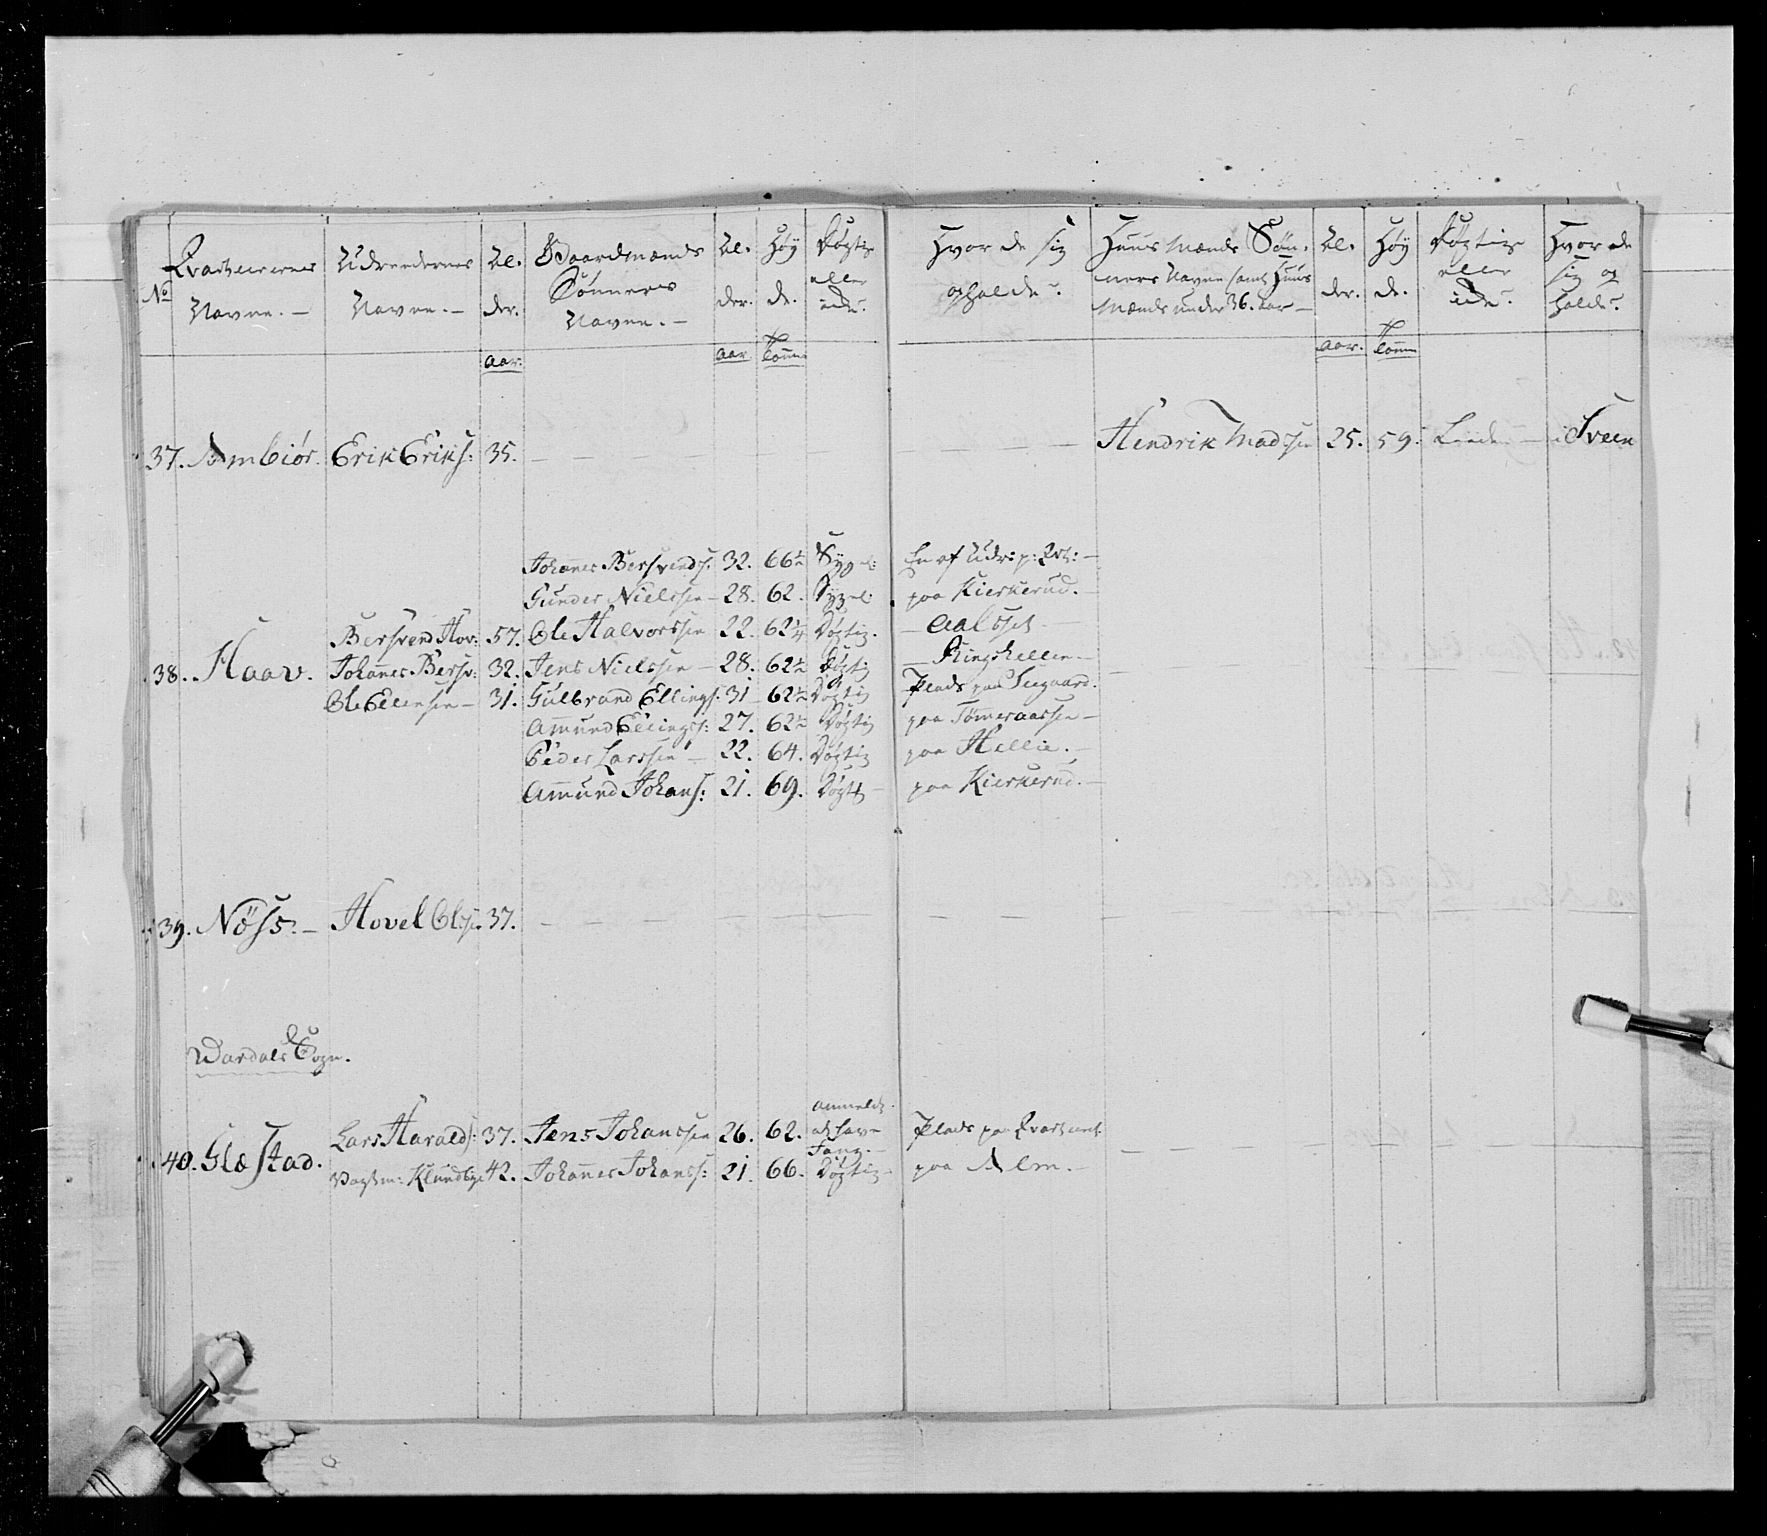 No Qvarterernes Navne. — Udrendernes Navne. — Al. der. Aar. Gaardmænds Sønners Navne. — Al. der. Aar Høy de. Tomm Døgtig eller ide.
Hvor de sig opholde. Huus Mænds Sønners Navne samt Huus Mænd under 36. Aar — Al. der. Aar. Høy de. Tomm Døgtige eller ide. Hvor de sig opholde.
37. Ambiör. Erik Eriks: 35. — — — — — Hendrik Madssen 25. 59. Liden — i Sveen
Johannes Bersvends: 32. 66½ Sygel: En af Udr: p: Qvt: —
Gunder Nielssen — 28. 62. Sygel: paa Kierkerud. —
Bersvend Hov: 57. Ole Halvorssen 22. 62¼ Døgtig. — Aalsset —
38. Haav. Johannes Bersv: 32. Jens Nielssen — 28. 62½ Døgtig — Ringhellen —
Ole Ellensen — 31. Gulbrand Ellings: 31 62½ Døgtig Plads paa Seegaard.
Amund Ellingss: 27. 62½ Døgtig paa Tømeraassen —
Peder Larssen — 22. 64. Døgtig paa Hellie. —
Amund Johans: 21. 69. Døgtg — paa Kierkerud. —
39. Nøss. — Hovel Ols: 37. — — — — — — —
Wardals Sogn.
Anmeldt
Lars Haralds: 37. Jens Johanssen 26. 62. at have Plads paa Qvarteret
40. Glæstad. Fang. —
Vagtm: Klundby 42. Johannes Johanss: 21. 66. Døgtig — paa Alm. —